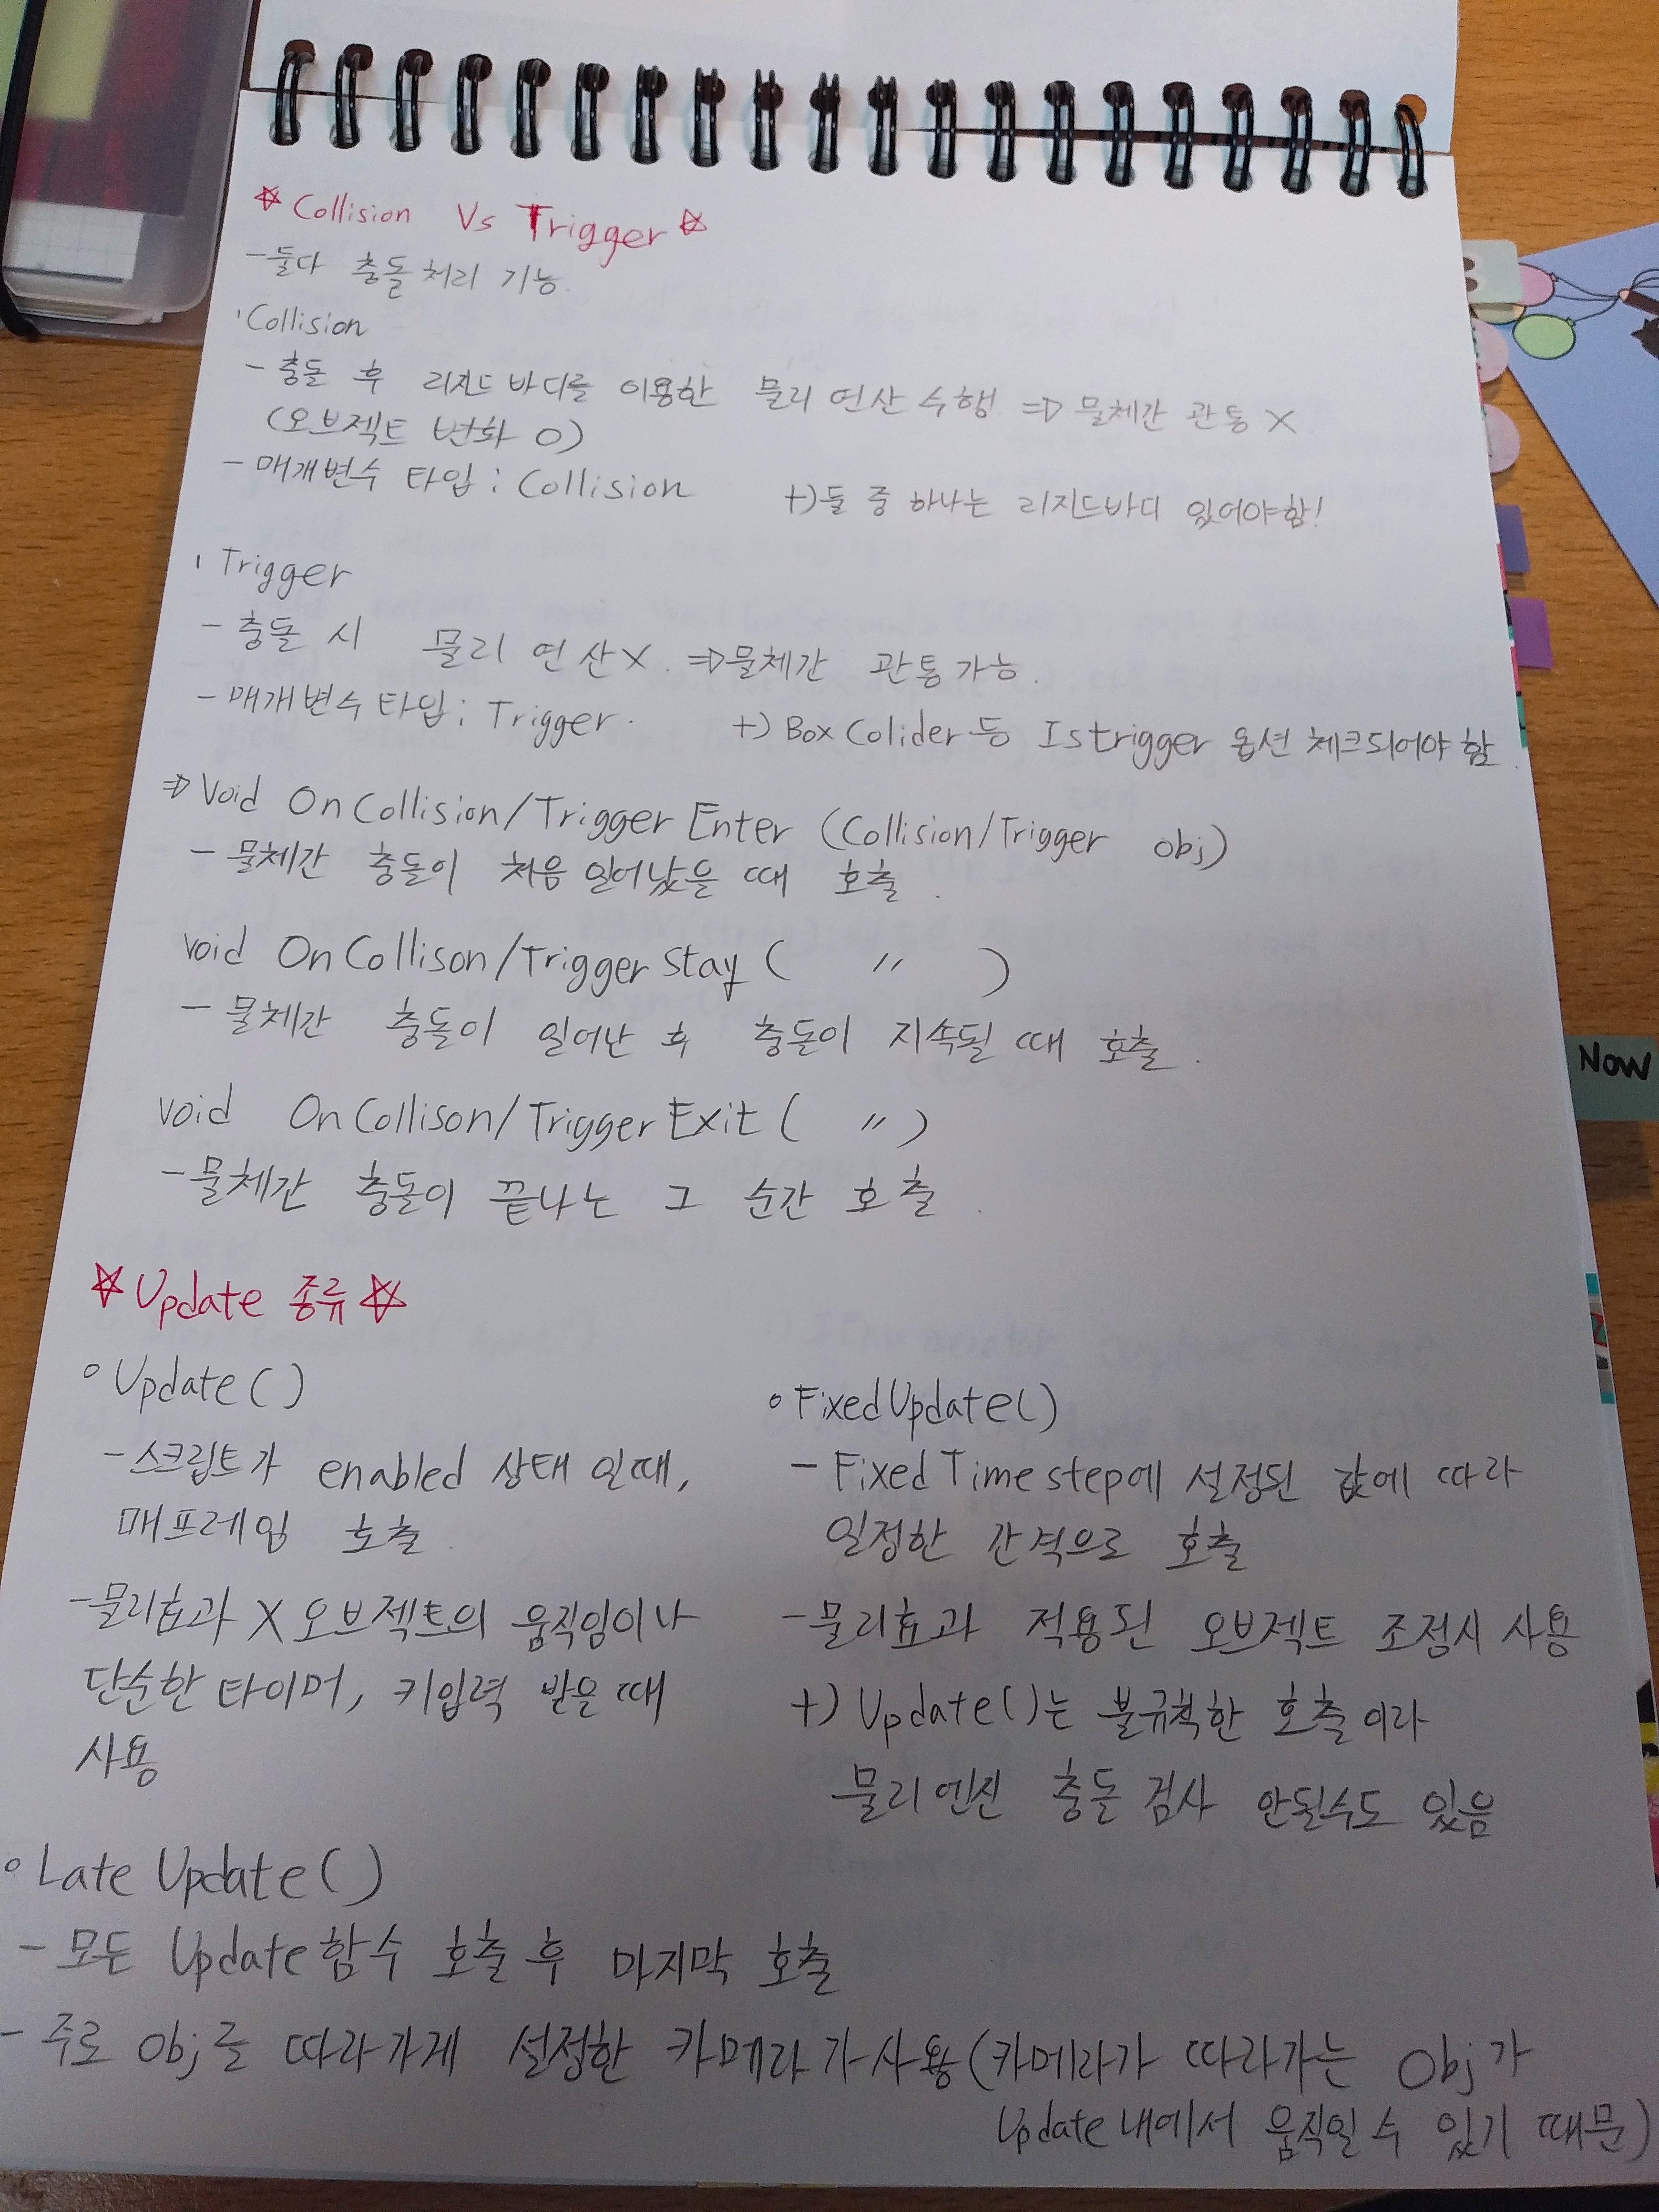 ☆Collision Vs Trigger☆
-둘다 충돌처리 기능.
'Collision
- 충돌 후 리지드바디를 이용한 물리 연산 수행 => 물체간 관통 X
(오브젝트 변화 O)
- 매개변수 타입 : Collision
+) 둘 중 하나는 리지드바디 있어야함!
' Trigger
- 충돌 시 물리 연산X. =>물체간 관통가능.
- 매개변수타입 : Trigger.
+) Box Colider 등 Istrigger 옵션 체크되어야 함.
=> Void OnCollision/TriggerEnter (Collision/Trigger obj)
- 물체간 충돌이 처음 일어났을 때 호출.
void OnCollison/TriggerStay ( 〃 )
- 물체간 충돌이 일어난 후 충돌이 지속될 때 호출.
void OnCollison/TriggerExit ( 〃 )
-물체간 충돌이 끝나는 그 순간 호출.
☆Update 종류☆
○ Update ( )
-스크립트가 enabled 상태 일때,
매프레임 호출.
-물리효과 X 오브젝트의 움직임이나
단순한 타이머, 키입력 받을 때
사용
○ FixedUpdate()
- Fixed Timestep에 설정된 값에 따라
일정한 간격으로 호출
-물리효과 적용된 오브젝트 조정시 사용
+) Update()는 불규칙한 호출이라
물리엔진 충돌 검사 안될수도 있음
○ Late Update( )
- 모든 Update 함수 호출 후 마지막 호출
- 주로 obj를 따라가게 설정한 카메라가 사용 (카메라가 따라가는 Obj가
Update 내에서 움직일 수 있기 때문)
Now